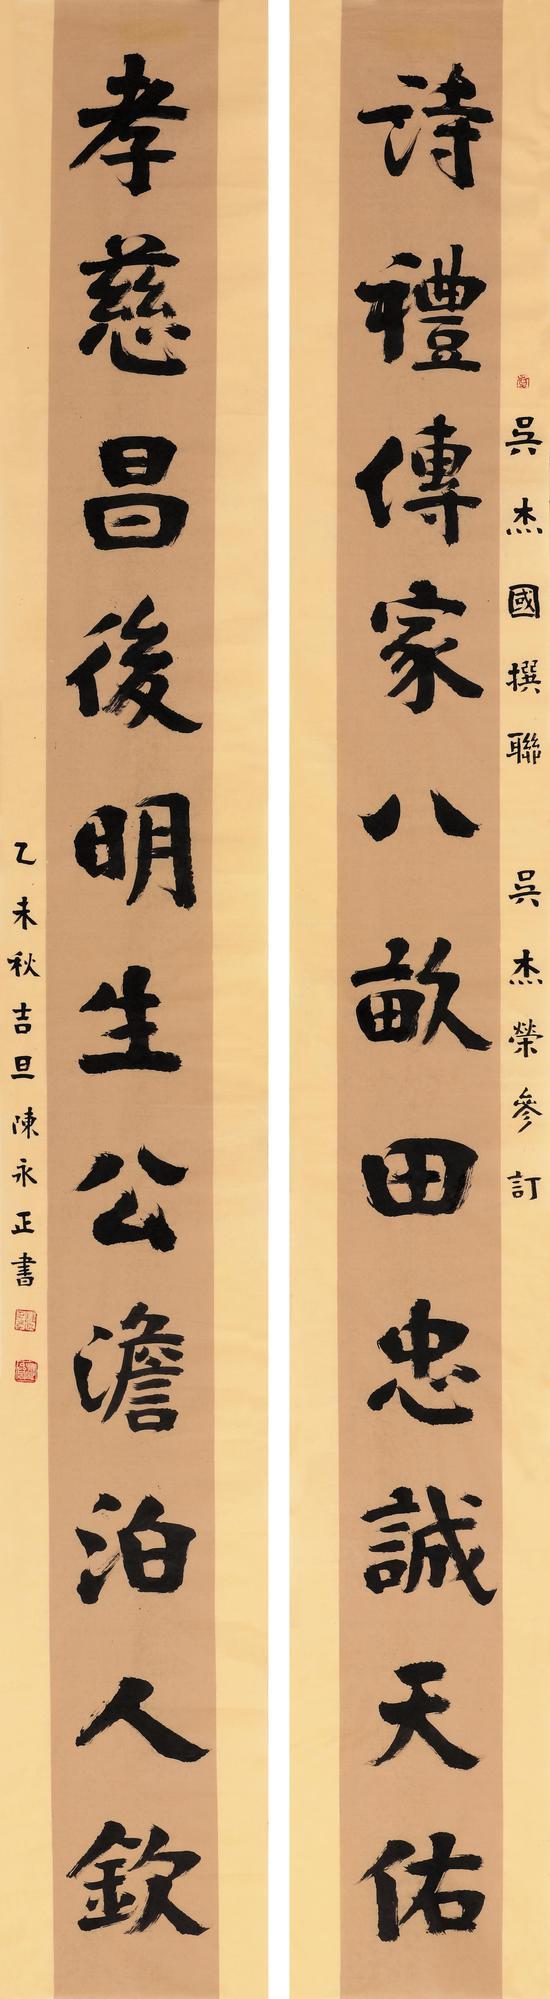 吳杰國撰聯 吳杰榮參訂
詩禮傳家八畝田忠誠天佑
孝慈昌後明生公澹泊人欽
乙未秋吉旦陳永正書